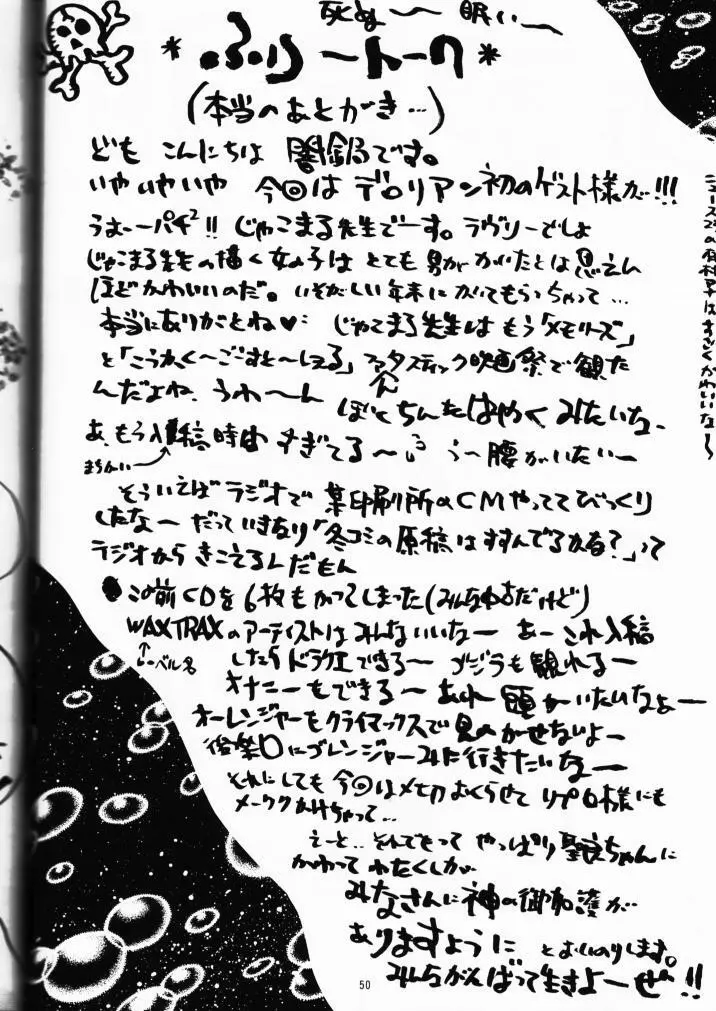 死ぬ〜〜 眠い〜
*ふりーとーく*
(本当のあとがき…)
ども こんにちは 闇鍋です。
いやいやいや 今回は デロリアン初のゲスト様が!!!
うおーーパチ²!! じゃこまる先生でーす。ラヴリーでしょ
じゃこまる先生の描く女の子は とても男がかいたとは思えん
ほどかわいいのだ。いそがしい年末にかいてもらっちゃって…
本当にありがとね♥ じゃこまる先生はもう「メモリーズ」
と「こうかく〜ごーすと〜しぇる」ファンタスティック映画祭で観た
んだよね、うわ〜〜ん ぼくちんもはやくみたいなー
あ、もう入稿時間すぎてる〜 う〜腰がいたい〜
まちがい
そういえばラジオで 某印刷所のCMやっててびっくり
したな〜 だっていきなり「冬コミの原稿はすすんでるかな?」って
ラジオからきこえるんだもん
この前CDを6枚もかってしまった(みんな中古だけど)
WAXTRAXのアーティストはみんないいなー あーこれ入稿
↑レーベル名
したらドラクエできる〜 ゴジラも観れる〜
オナニーもできる〜 あれ 頭がいたいなぁー
オーレンジャーもクライマックスで見のがせないよー
後楽□にゴレンジャーみに行きたいなー
それにしても今回はメチャおくらせて リプロ様にも
メーワクかけちゃって…
えーと.. そんでもって やっぱり聖良ちゃんに
かわって わたくしが
みなさんに神の御加護が
ありますように とおいのりします。
みんながんばって生きよーぜ!!
はすごくかわいいな〜
50